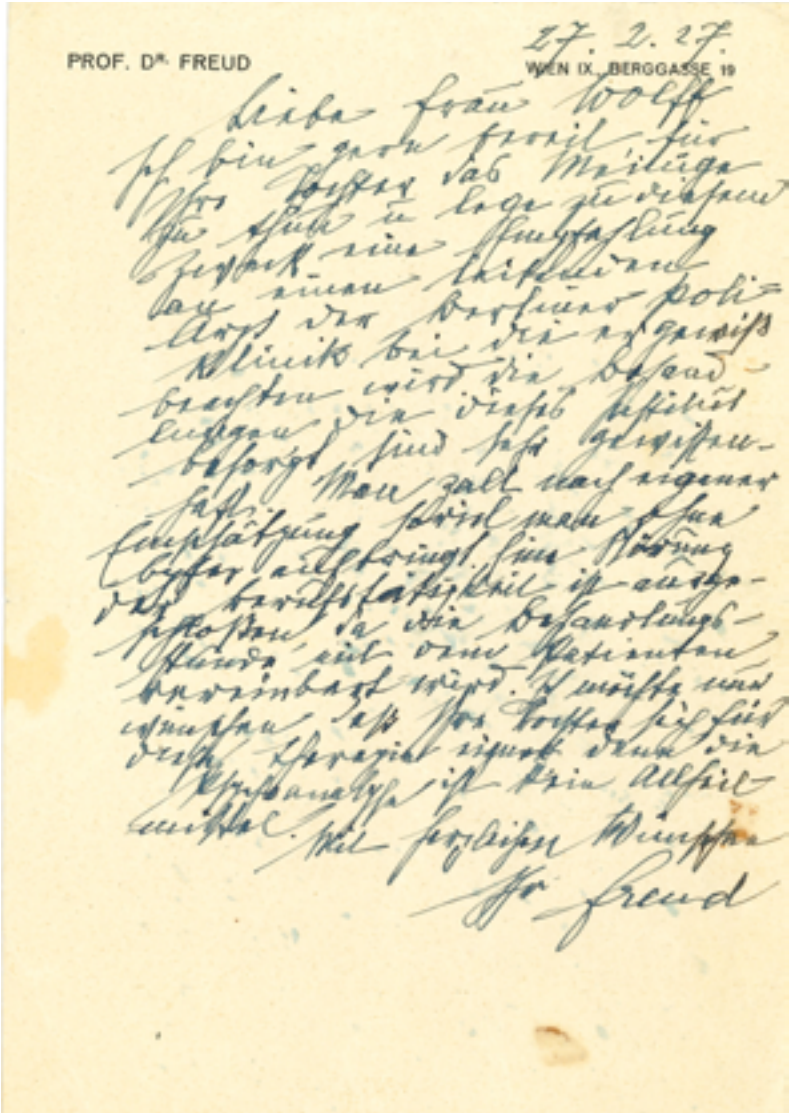 27. 2. 27.
PROF. DR. FREUD
WIEN IX., BERGGASSE 19
Liebe Frau Wolff
Ich bin gern bereit, für
Ihre Tochter das Meinige
zu thun u lege zu diesem
Zweck eine Empfehlung
an einen leitenden
Arzt der Berliner Poli=
klinik bei die er gewiß
beachten wird die Behand-
lungen die dieses Institut
besorgt sind sehr gewissen-
haft. Man zalt nach eigener
Einschätzung soviel man ohne
Opfer aufbringt. Eine Störung
der Berufstätigkeit ist ausge-
schloßen da die Behandlungs-
stunde mit dem Patienten
vereinbart wird. I möchte nur
wünschen daß Ihre Tochter sich für
diese Therapie eignet denn die
Psychoanalyse ist kein Allheil-
mittel.
Mit herzlichen Wünschen
Ihr Freud